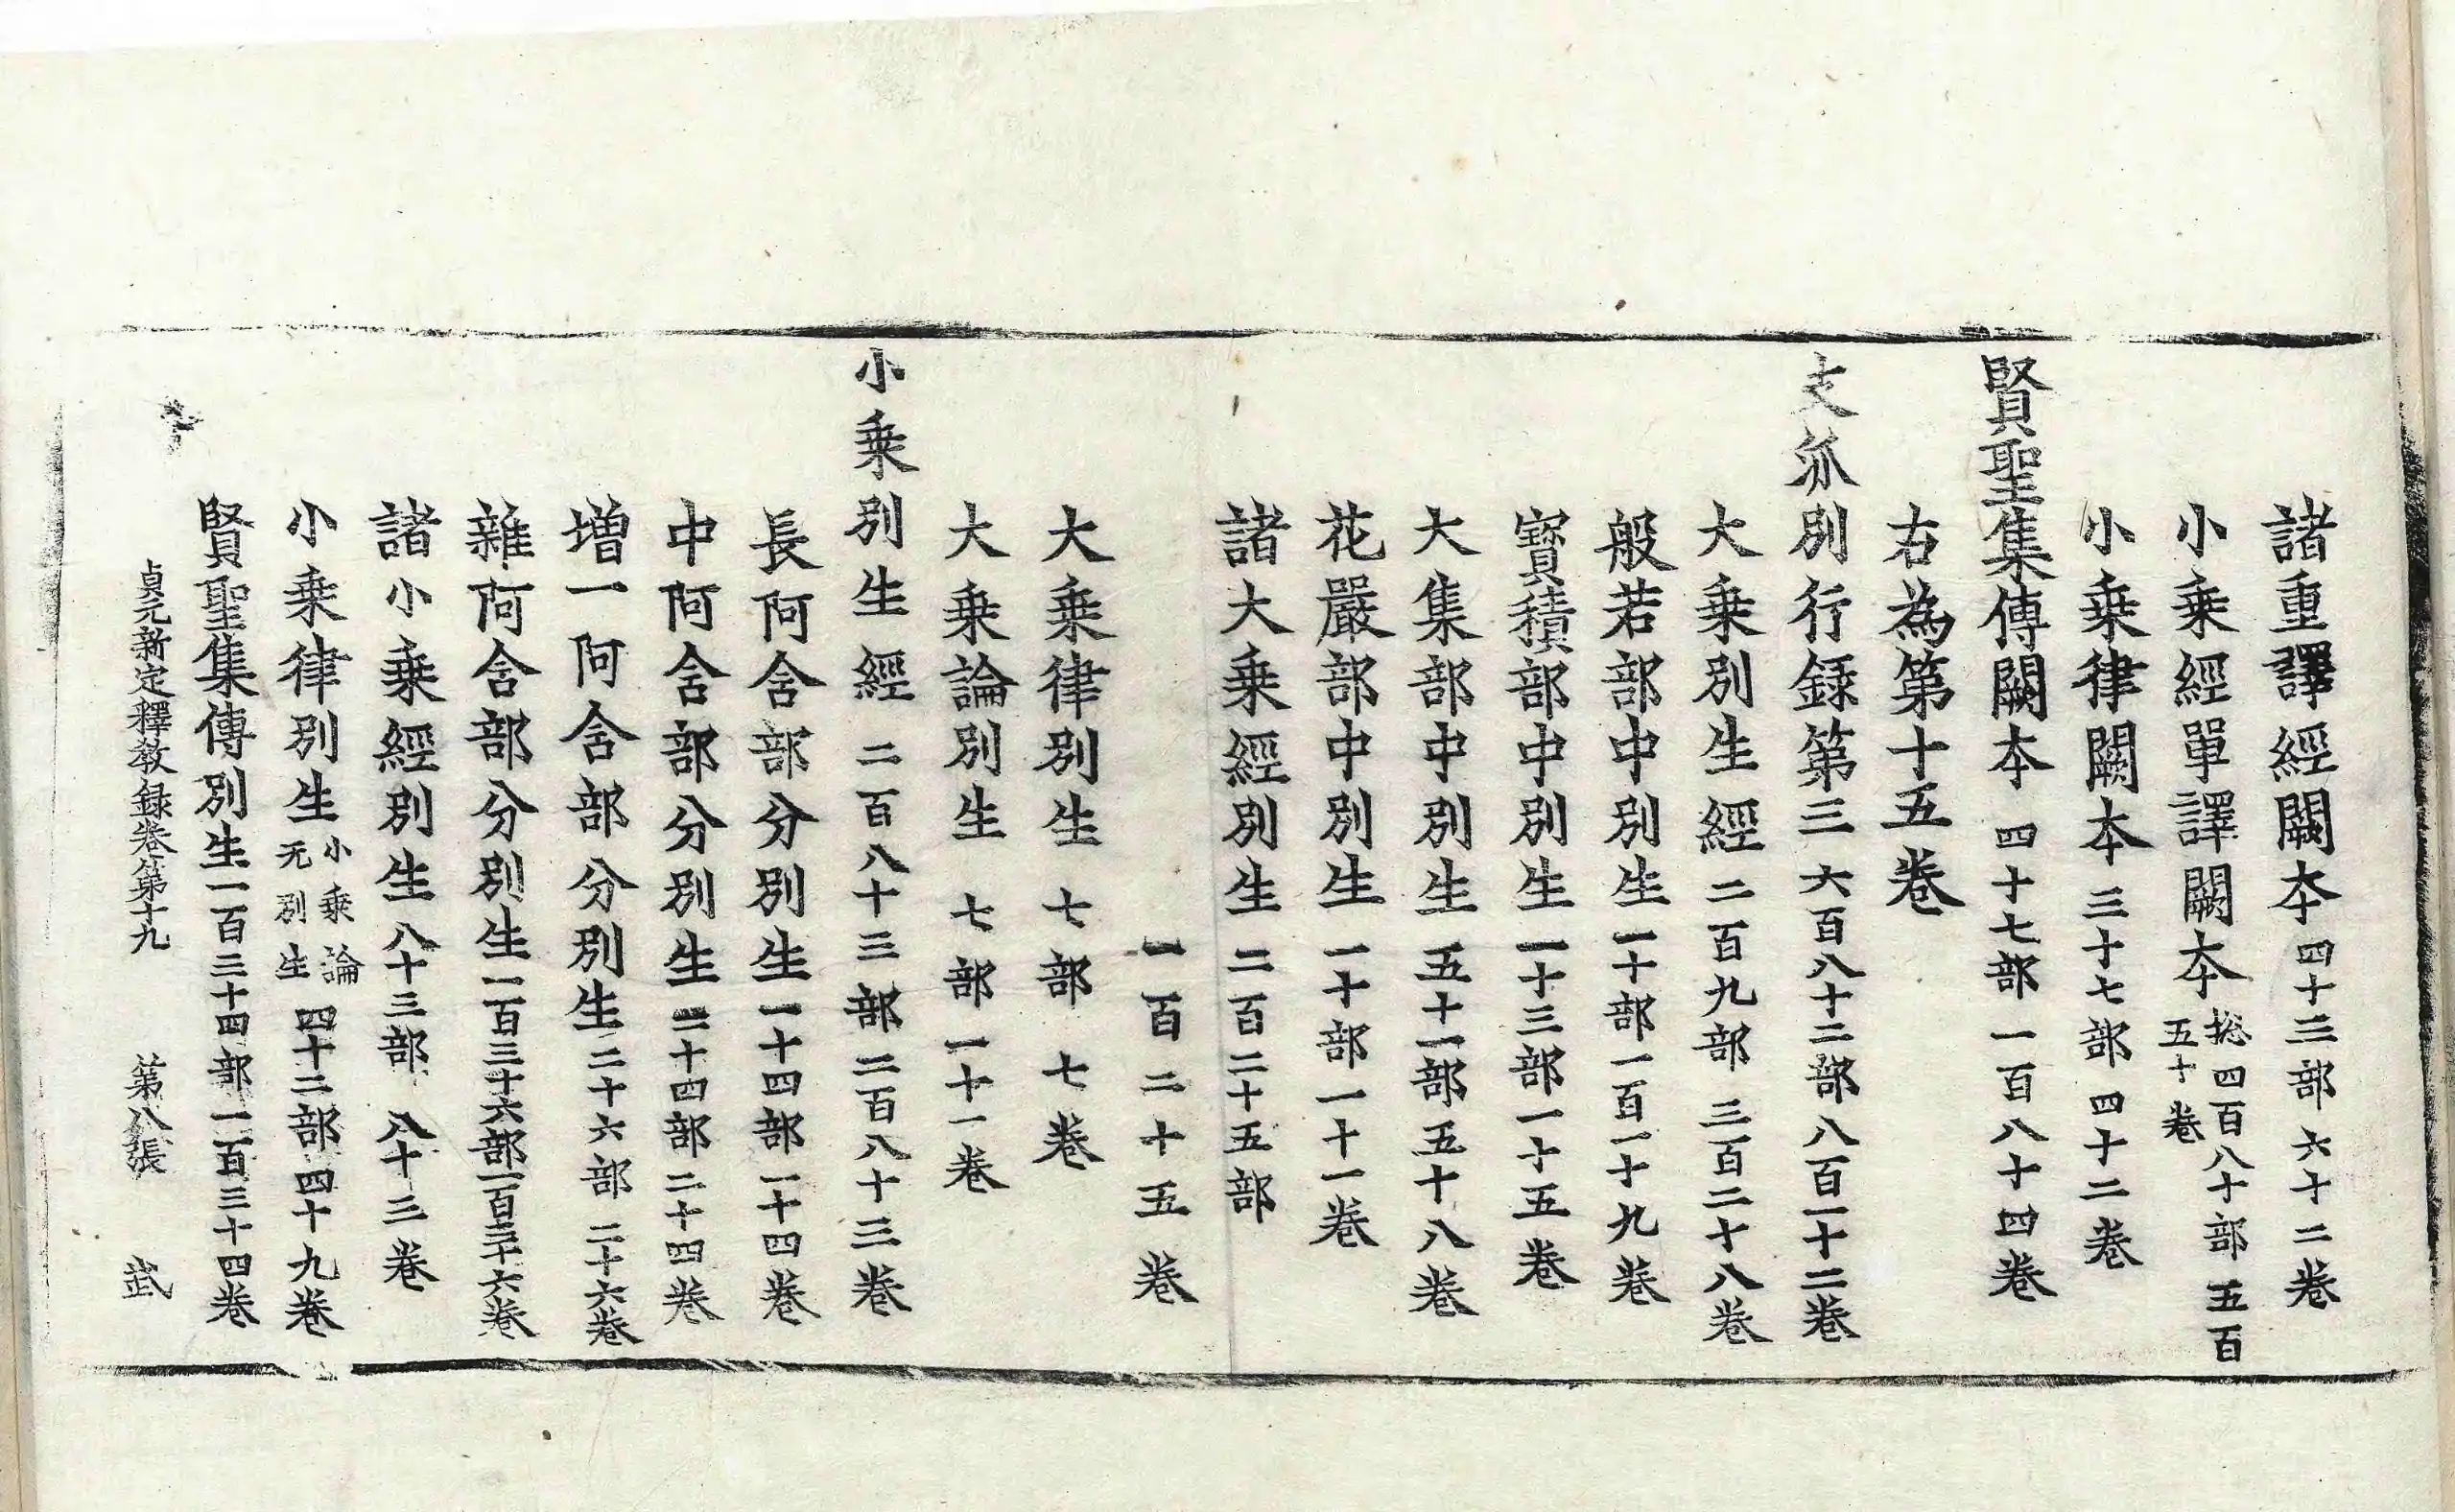 諸重譯經闕本四十三部六十二卷
小乗經單譯闕本捴四百八十部五百五十卷
小乗律闕本三十七部四十二卷
賢聖集傳闕本四十七部一百八十四卷
右為第十五卷
支派別行録第三六百八十二部八百一十二卷
大乗別生經二百九部三百二十八卷
般若部中別生一十部一百一十九卷
寶積部中別生一十三部一十五卷
大集部中別生五十一部五十八卷
花嚴部中別生一十部一十一卷
諸大乗經別生二百二十五部
一百二十五卷
大乗律別生七部七卷
大乗論別生七部一十一卷
小乗別生經二百八十三部二百八十三卷
長阿含部分別生一十四部一十四卷
中阿含部分別生二十四部二十四卷
増一阿含部分別生二十六部二十六卷
雜阿含部分別生一百三十六部一百三十六卷
諸小乗經別生八十三部八十三卷
小乗律別生小乗論无別生四十二部四十九卷
賢聖集傳別生一百三十四部一百三十四卷
貞元新定釋教録卷第十九 第八張